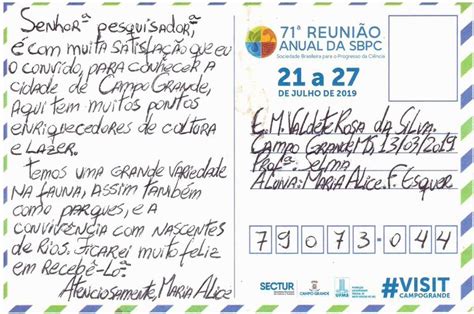 Senhorª pesquisador,ª
é com muita satisfação que eu
o convido, para conhecer a
cidade de Campo Grande,
Aqui tem muitos pontos
enriquecedores de cultura
e lazer.
Temos uma grande variedade
na fauna, assim também
como parques, e a
convivência com nascentes
de rios. Ficarei muito feliz
em recebê-lo.ª
Atenciosamente, Maria Alice
71ª REUNIÃO
ANUAL DA SBPC
Sociedade Brasileira para o Progresso da Ciência
21 a 27
DE JULHO DE 2019
E.M. Valdete Rosa da Silva.
Campo Grande MS, 13/03/2019
Profª. Selma
Aluna: Maria Alice. F. Esquer
79073-044
SECTUR
CAMPO GRANDE
UFMS
#VISIT
CAMPOGRANDE